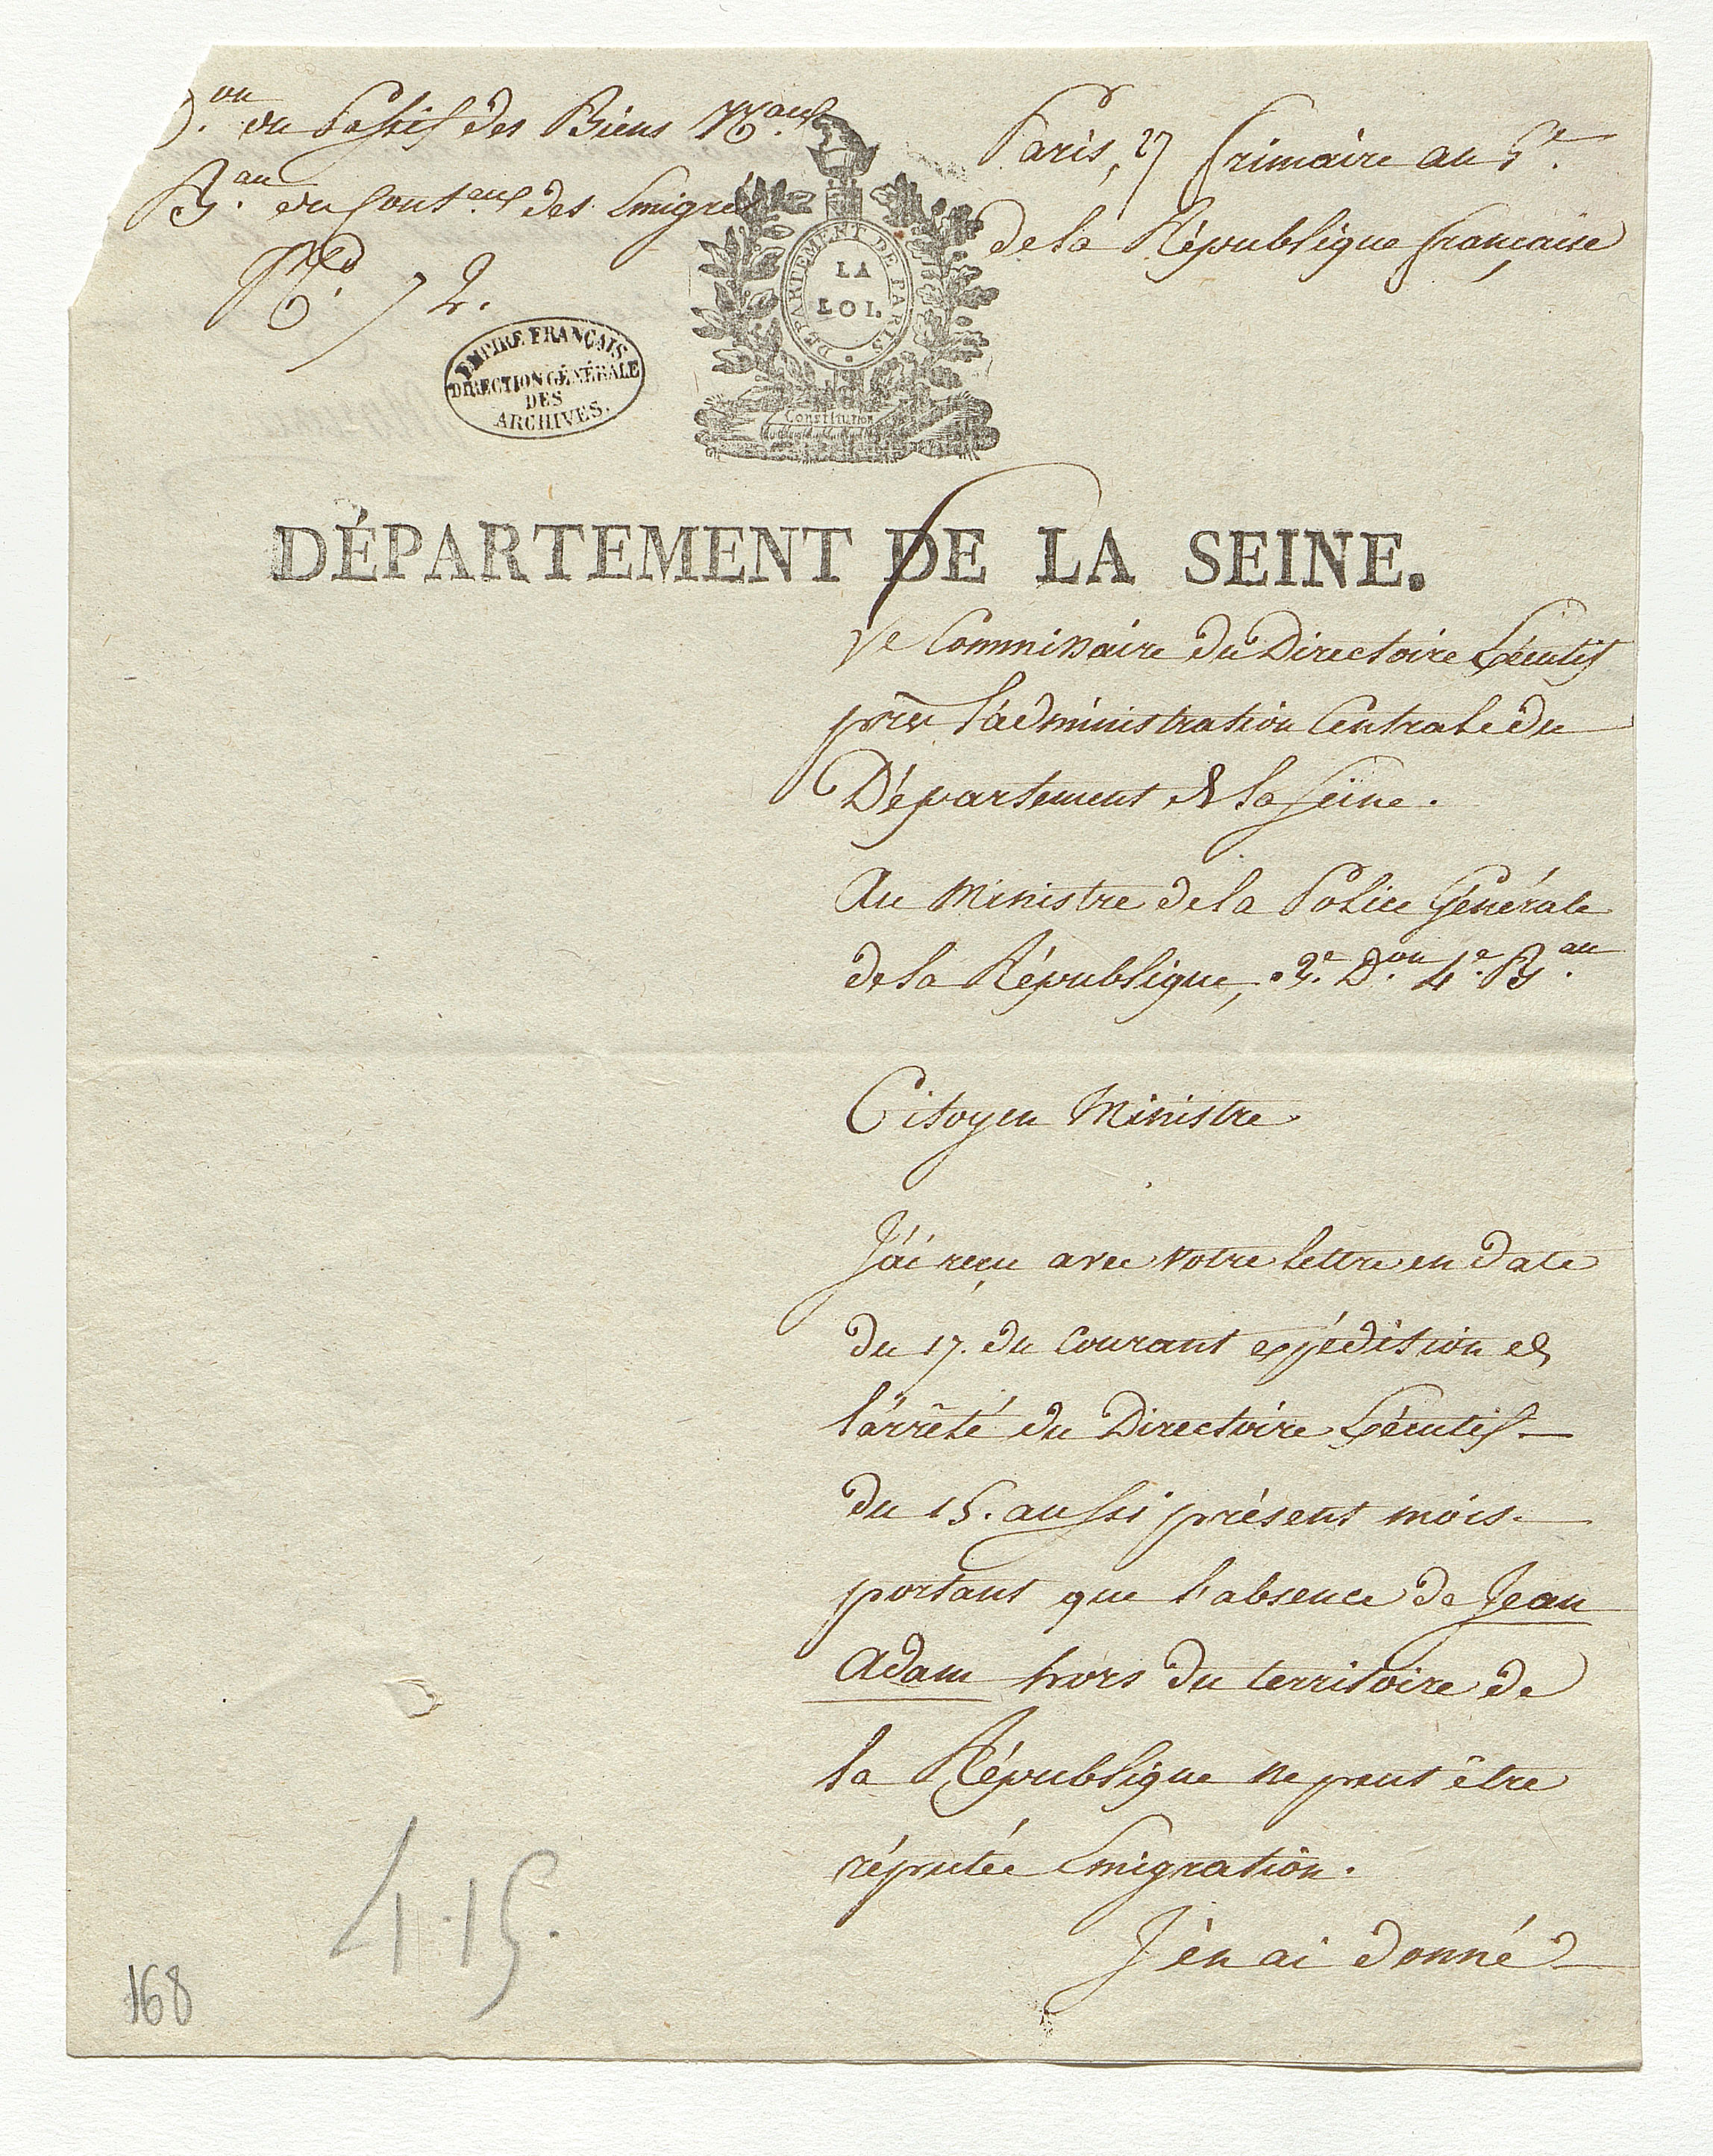 D.on du Passif des Biens N.aux
B.au du Cont.eux des Emigrés
N.º 72.
Paris, 27 frimaire an 5.e
de la République française
DÉPARTEMENT DE PARIS
LA
LOI.
Constitution
EMPIRE FRANÇAIS
DIRECTION GÉNÉRALE
DES
ARCHIVES.
DÉPARTEMENT DE LA SEINE.
Le Commissaire du Directoire Exécutif
près l'administration Centrale du
Département de la Seine.
Au Ministre de la Police Générale
de la République, 3.e D.on 4.e B.au
Citoyen Ministre
J'ai reçu avec votre lettre en date
du 17. du Courant expédition de
l'arrêté du Directoire Exécutif
du 15. aussi présent mois
portant que l'absence de Jean
Adam hors du territoire de
la République ne peut être
réputée Emigration.
J'en ai donné
415.
168